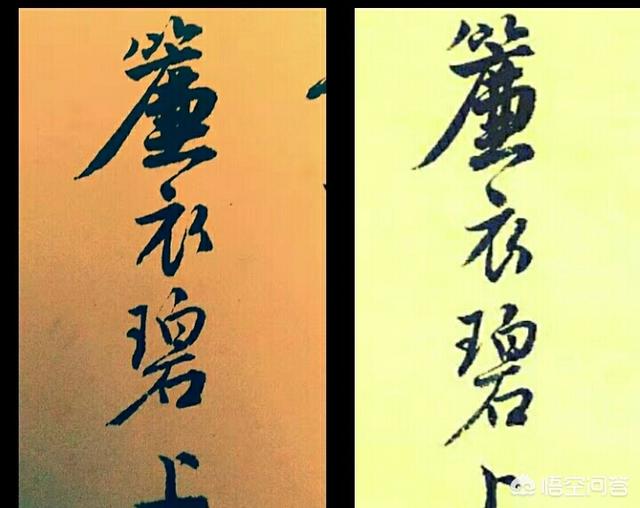 簾衣碧上
簾衣碧上
悟空问答